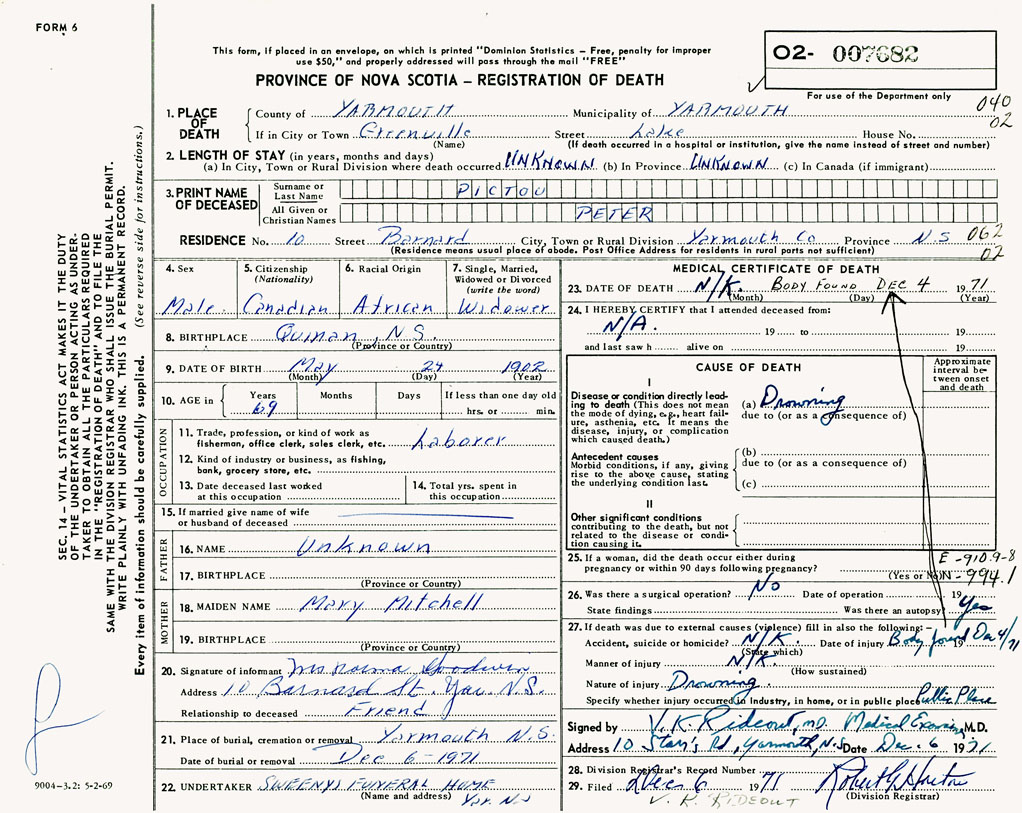 FORM 6
This form, if placed in an envelope, on which is printed "Dominion Statistics – Free, penalty for improper
use $50," and properly addressed will pass through the mail "FREE"
PROVINCE OF NOVA SCOTIA – REGISTRATION OF DEATH
02- 007682
For use of the Department only
040
02
1. PLACE OF DEATH
County of YARMOUTH Municipality of YARMOUTH
If in City or Town Greenville Street Lake House No.
(Name) (If death occurred in a hospital or institution, give the name instead of street and number)
2. LENGTH OF STAY (in years, months and days)
(a) In City, Town or Rural Division where death occurred UNKNOWN (b) In Province UNKNOWN (c) In Canada (if immigrant)
3. PRINT NAME OF DECEASED
Surname or Last Name PICTOU
All Given or Christian Names PETER
RESIDENCE No. 10 Street Barnard City, Town or Rural Division Yarmouth Co Province N.S 062
02
(Residence means usual place of abode. Post Office Address for residents in rural parts not sufficient)
4. Sex
Male
5. Citizenship
(Nationality)
Canadian
6. Racial Origin
African
7. Single, Married,
Widowed or Divorced
(write the word)
Widower
8. BIRTHPLACE Quinan, N.S.
(Province or Country)
9. DATE OF BIRTH May 24 1902
(Month) (Day) (Year)
10. AGE in
Years Months Days If less than one day old
69 hrs. or min.
OCCUPATION
11. Trade, profession, or kind of work as
fisherman, office clerk, sales clerk, etc. Laborer
12. Kind of industry or business, as fishing,
bank, grocery store, etc.
13. Date deceased last worked
at this occupation
14. Total yrs. spent in
this occupation
15. If married give name of wife
or husband of deceased
FATHER
16. NAME Unknown
17. BIRTHPLACE
(Province or Country)
MOTHER
18. MAIDEN NAME Mary Mitchell
19. BIRTHPLACE
(Province or Country)
20. Signature of informant Mrs Goodwin
Address 10 Barnard St. Yar. N.S.
Relationship to deceased Friend
21. Place of burial, cremation or removal Yarmouth N.S.
Date of burial or removal Dec 6-1971
22. UNDERTAKER SWEENYS FUNERAL HOME
(Name and address) Yar. N.S
MEDICAL CERTIFICATE OF DEATH
23. DATE OF DEATH N/K. BODY FOUND DEC 4 1971
(Month) (Day) (Year)
24. I HEREBY CERTIFY that I attended deceased from:
N/A. 19 to 19
and last saw h alive on 19
CAUSE OF DEATH
Approximate
interval be-
tween onset
and death
I
Disease or condition directly lead-
ing to death (This does not mean
the mode of dying, e.g., heart fail-
ure, asthenia, etc. It means the
disease, injury, or complication
which caused death.)
(a) Drowning
due to (or as a consequence of)
Antecedent causes
Morbid conditions, if any, giving
rise to the above cause, stating
the underlying condition last.
(b)
due to (or as a consequence of)
(c)
II
Other significant conditions
contributing to the death, but not
related to the disease or condi-
tion causing it.
25. If a woman, did the death occur either during
pregnancy or within 90 days following pregnancy?
(Yes or No)
E-910.9-8
N-994.1
26. Was there a surgical operation? No Date of operation 19
State findings Was there an autopsy? Yes
27. If death was due to external causes (violence) fill in also the following:–
Accident, suicide or homicide? N/K Date of injury Body found Dec 4/71 19
(State which)
Manner of injury N/K.
(How sustained)
Nature of injury Drowning
Specify whether injury occurred in Industry, in home, or in public place Public Place
Signed by V.K. Rideout, M.D. Medical Examiner M.D.
Address 10 Starr's Rd, Yarmouth, N.S Date Dec. 6 1971
28. Division Registrar's Record Number
29. Filed Dec 6 1971
(Division Registrar)
V. K. RIDEOUT
SEC. 14 – VITAL STATISTICS ACT MAKES IT THE DUTY
OF THE UNDERTAKER OR PERSON ACTING AS UNDER-
TAKER TO OBTAIN ALL THE PARTICULARS REQUIRED
IN THE "REGISTRATION OF DEATH" AND TO FILE THE
SAME WITH THE DIVISION REGISTRAR WHO SHALL ISSUE THE BURIAL PERMIT.
WRITE PLAINLY WITH UNFADING INK. THIS IS A PERMANENT RECORD.
Every item of information should be carefully supplied. (See reverse side for instructions.)
9004-3.2: 5-2-69